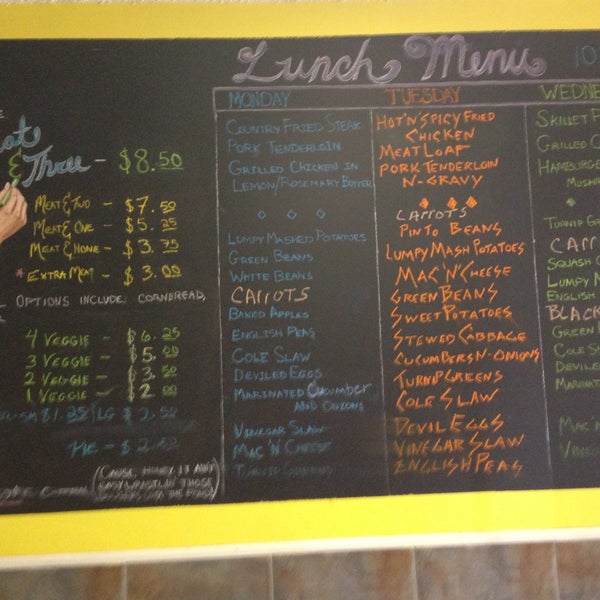 Lunch Menu
Three - $8.50
MEAT & TWO - $7.50
MEAT & ONE - $5.25
MEAT & NONE - $3.75
* EXTRA MEAT - $3.00
OPTIONS INCLUDE: CORNBREAD,
4 VEGGIE - $6.25
3 VEGGIE - $5.
2 VEGGIE - $3.
1 VEGGIE - $2.
LG - $2.50
MONDAY
COUNTRY FRIED STEAK
PORK TENDERLOIN
GRILLED CHICKEN IN
LEMON/ROSEMARY BUTTER
LUMPY MASHED POTATOES
GREEN BEANS
WHITE BEANS
CARROTS
BAKED APPLES
ENGLISH PEAS
COLE SLAW
DEVILED EGGS
MARINATED CUCUMBER
AND ONIONS
VINEGAR SLAW
MAC 'N' CHEESE
TURNIP GREENS
TUESDAY
HOT 'N' SPICY FRIED
CHICKEN
MEAT LOAF
PORK TENDERLOIN
N-GRAVY
CARROTS
PINTO BEANS
LUMPY MASH POTATOES
MAC 'N' CHEESE
GREEN BEANS
SWEET POTATOES
STEWED CABBAGE
CUCUMBERS-N-ONIONS
TURNIP GREENS
COLE SLAW
DEVIL EGGS
VINEGAR SLAW
ENGLISH PEAS
10
WEDNE
SKILLET F
GRILLED C
HAMBURGE
MUSH
TURNIP GRE
CARR
SQUASH C
LUMPY M
ENGLISH
BLACK
GREEN
COLE SL
DEVILE
MARINAT
MAC 'N'
VINE